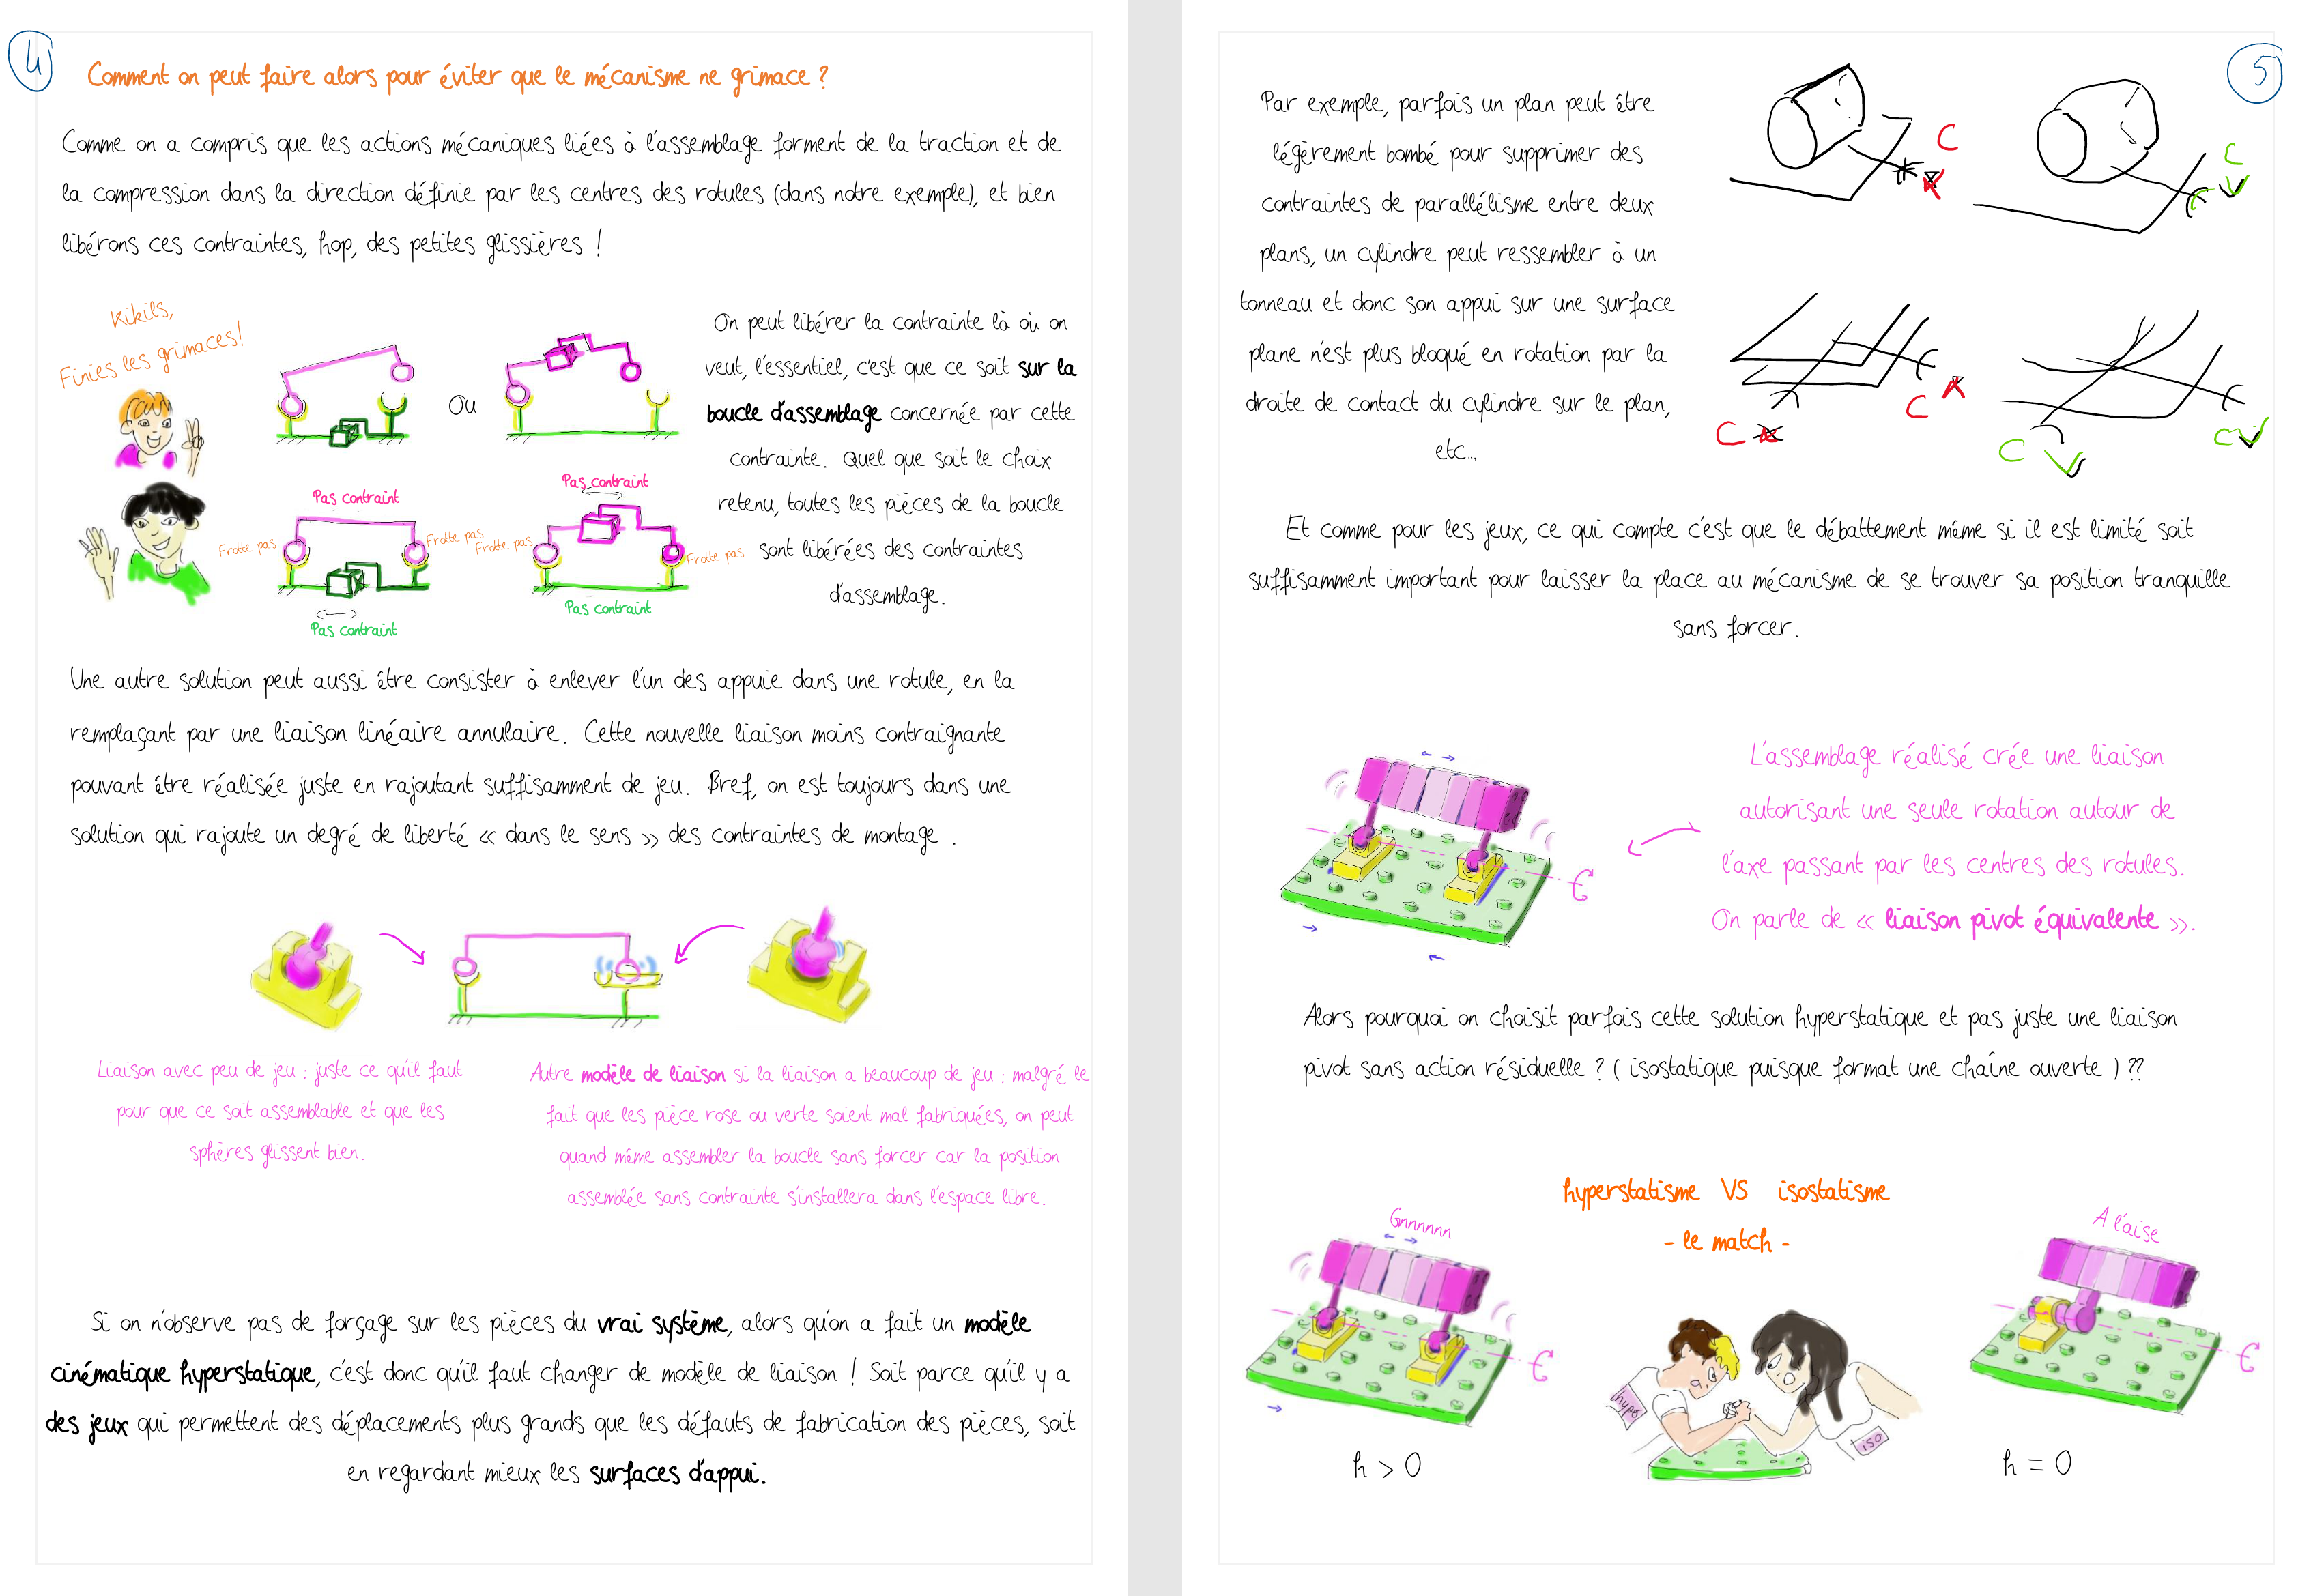 4
Comment on peut faire alors pour éviter que le mécanisme ne grimace ?
Comme on a compris que les actions mécaniques liées à l'assemblage forment de la traction et de
la compression dans la direction définie par les centres des rotules (dans notre exemple), et bien
libérons ces contraintes, hop, des petites glissières !
Kikils,
Finies les grimaces!
Ou
On peut libérer la contrainte là où on
veut, l'essentiel, c'est que ce soit sur la
boucle d'assemblage concernée par cette
contrainte. Quel que soit le choix
retenu, toutes les pièces de la boucle
sont libérées des contraintes
d'assemblage.
Pas contraint
Frotte pas
Frotte pas
Pas contraint
Pas contraint
Frotte pas
Frotte pas
Pas contraint
Une autre solution peut aussi être consister à enlever l'un des appuie dans une rotule, en la
remplaçant par une liaison linéaire annulaire. Cette nouvelle liaison moins contraignante
pouvant être réalisée juste en rajoutant suffisamment de jeu. Bref, on est toujours dans une
solution qui rajoute un degré de liberté « dans le sens » des contraintes de montage .
Liaison avec peu de jeu : juste ce qu'il faut
pour que ce soit assemblable et que les
sphères glissent bien.
Autre modèle de liaison si la liaison a beaucoup de jeu : malgré le
fait que les pièce rose ou verte soient mal fabriquées, on peut
quand même assembler la boucle sans forcer car la position
assemblée sans contrainte s'installera dans l'espace libre.
Si on n'observe pas de forçage sur les pièces du vrai système, alors qu'on a fait un modèle
cinématique hyperstatique, c'est donc qu'il faut changer de modèle de liaison ! Soit parce qu'il y a
des jeux qui permettent des déplacements plus grands que les défauts de fabrication des pièces, soit
en regardant mieux les surfaces d'appui.
5
Par exemple, parfois un plan peut être
légèrement bombé pour supprimer des
contraintes de parallélisme entre deux
plans, un cylindre peut ressembler à un
tonneau et donc son appui sur une surface
plane n'est plus bloqué en rotation par la
droite de contact du cylindre sur le plan,
etc...
C
C
C
C
C
C
Et comme pour les jeux, ce qui compte c'est que le débattement même si il est limité soit
suffisamment important pour laisser la place au mécanisme de se trouver sa position tranquille
sans forcer.
L'assemblage réalisé crée une liaison
autorisant une seule rotation autour de
l'axe passant par les centres des rotules.
On parle de « liaison pivot équivalente ».
Alors pourquoi on choisit parfois cette solution hyperstatique et pas juste une liaison
pivot sans action résiduelle ? ( isostatique puisque format une chaîne ouverte ) ??
hyperstatisme VS isostatisme
- le match -
Gnnnnnn
A l'aise
hypo
iso
h > 0
h = 0